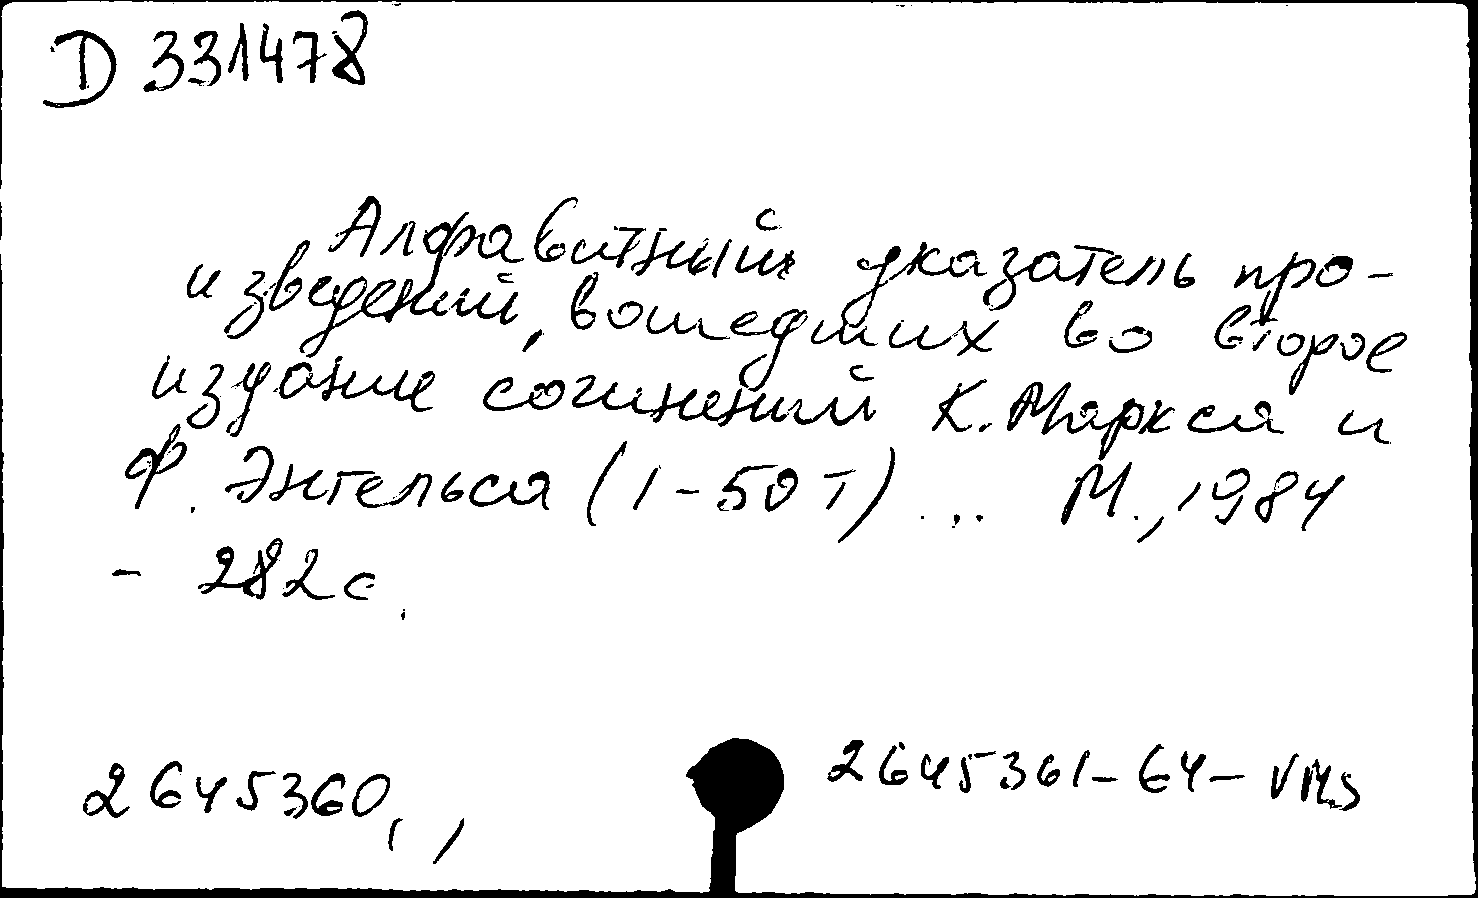 D 331478
Алфавитный указатель про-
изведений, вошедших во второе
издание сочинений К. Маркса и
Ф. Энгельса (1-50 т) ... М., 1984
- 282 с.
2645360,,
2645361-64-VMS